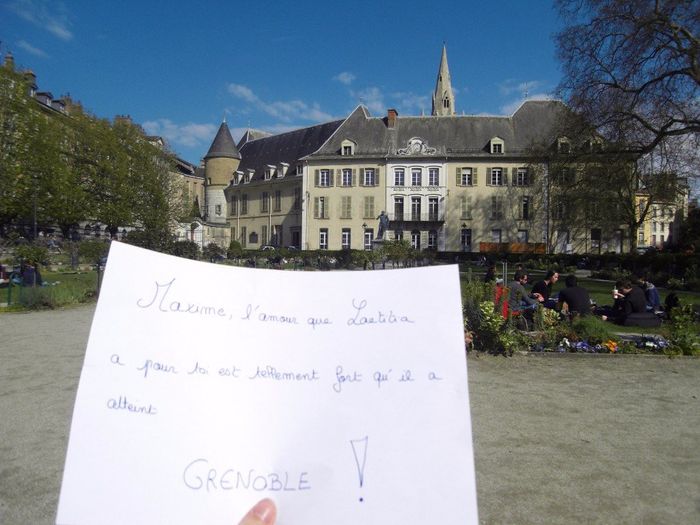 Maxime, l'amour que Laetitia
a pour toi est tellement fort qu'il a
atteint
GRENOBLE !